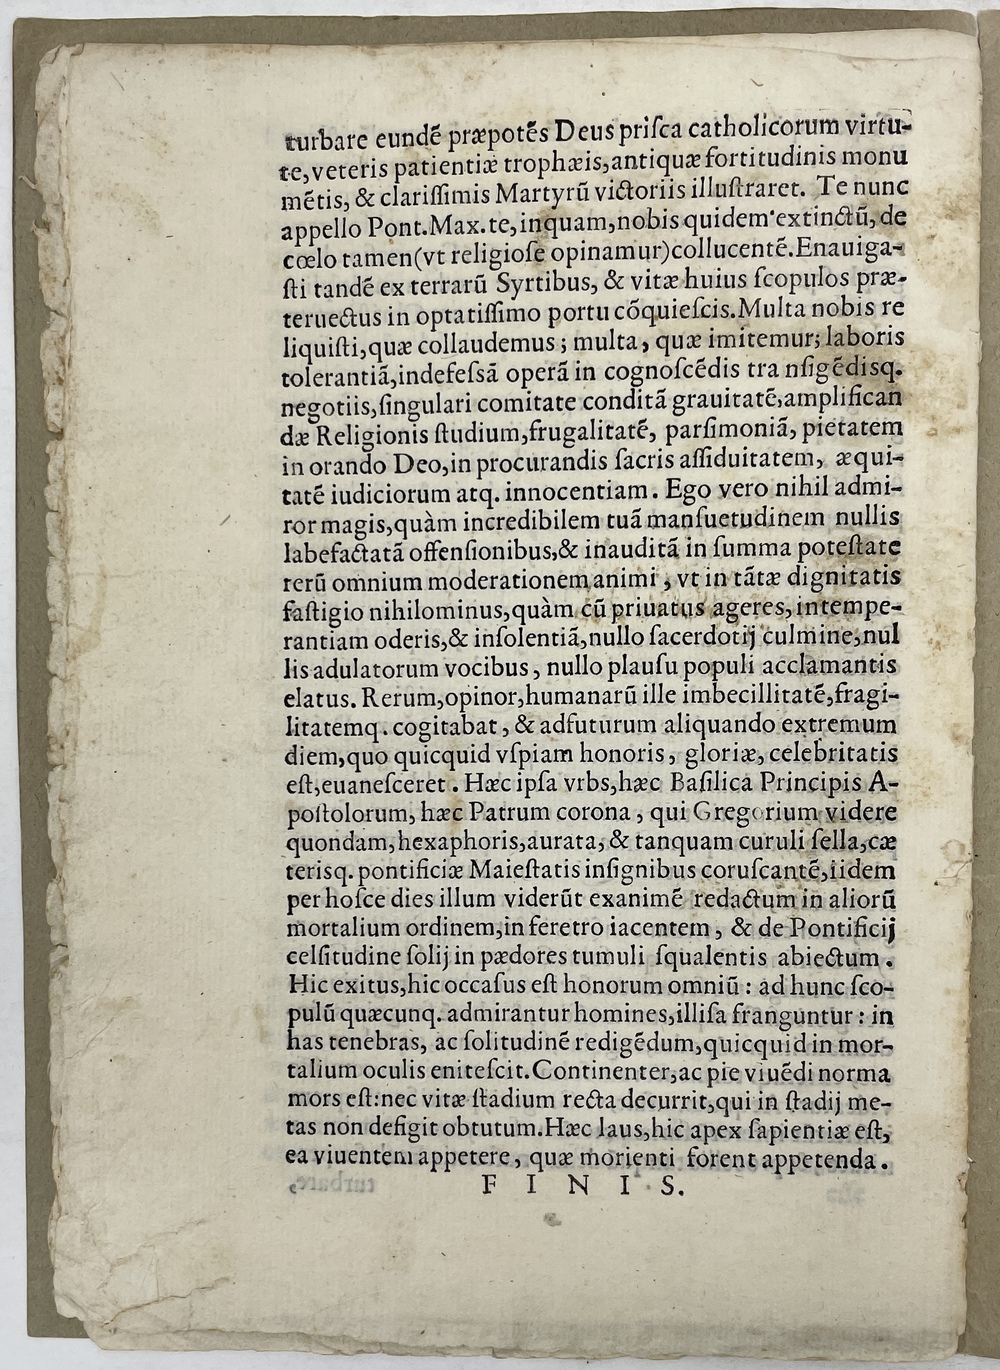 turbare eundē præpotēs Deus priſca catholicorum virtu-
te, veteris patientiæ trophæis, antiquæ fortitudinis monu
mētis, & clariſſimis Martyrū victoriis illuſtraret. Te nunc
appello Pont. Max. te, inquam, nobis quidem extinctū, de
cœlo tamen (vt religioſe opinamur) collucentē. Enauiga-
ſti tandē ex terrarū Syrtibus, & vitæ huius ſcopulos præ-
teruectus in optatiſſimo portu cōquieſcis. Multa nobis re
liquiſti, quæ collaudemus; multa, quæ imitemur; laboris
tolerantiā, indefeſsā operā in cognoſcēdis tra nſigēdisq.
negotiis, ſingulari comitate conditā grauitatē, amplifican
dæ Religionis ſtudium, frugalitatē, parſimoniā, pietatem
in orando Deo, in procurandis ſacris aſſiduitatem, æqui-
tatē iudiciorum atq. innocentiam. Ego vero nihil admi-
ror magis, quàm incredibilem tuā manſuetudinem nullis
labefactatā offenſionibus, & inauditā in ſumma poteſtate
rerū omnium moderationem animi, vt in tātæ dignitatis
faſtigio nihilominus, quàm cū priuatus ageres, intempe-
rantiam oderis, & inſolentiā, nullo ſacerdotij culmine, nul
lis adulatorum vocibus, nullo plauſu populi acclamantis
elatus. Rerum, opinor, humanarū ille imbecillitatē, fragi-
litatemq. cogitabat, & adfuturum aliquando extremum
diem, quo quicquid vſpiam honoris, gloriæ, celebritatis
eſt, euaneſceret. Hæc ipſa vrbs, hæc Baſilica Principis A-
poſtolorum, hæc Patrum corona, qui Gregorium videre
quondam, hexaphoris, aurata, & tanquam curuli ſella, cæ
teriſq. pontificiæ Maieſtatis inſignibus coruſcantē, iidem
per hoſce dies illum viderūt exanimē redactum in aliorū
mortalium ordinem, in feretro iacentem, & de Pontificij
celſitudine ſolij in pædores tumuli ſqualentis abiectum.
Hic exitus, hic occaſus eſt honorum omniū: ad hunc ſco-
pulū quæcunq. admirantur homines, illiſa franguntur: in
has tenebras, ac ſolitudinē redigēdum, quicquid in mor-
talium oculis eniteſcit. Continenter, ac pie viuēdi norma
mors eſt: nec vitæ ſtadium recta decurrit, qui in ſtadij me-
tas non defigit obtutum. Hæc laus, hic apex ſapientiæ eſt,
ea viuentem appetere, quæ morienti forent appetenda.
F I N I S.